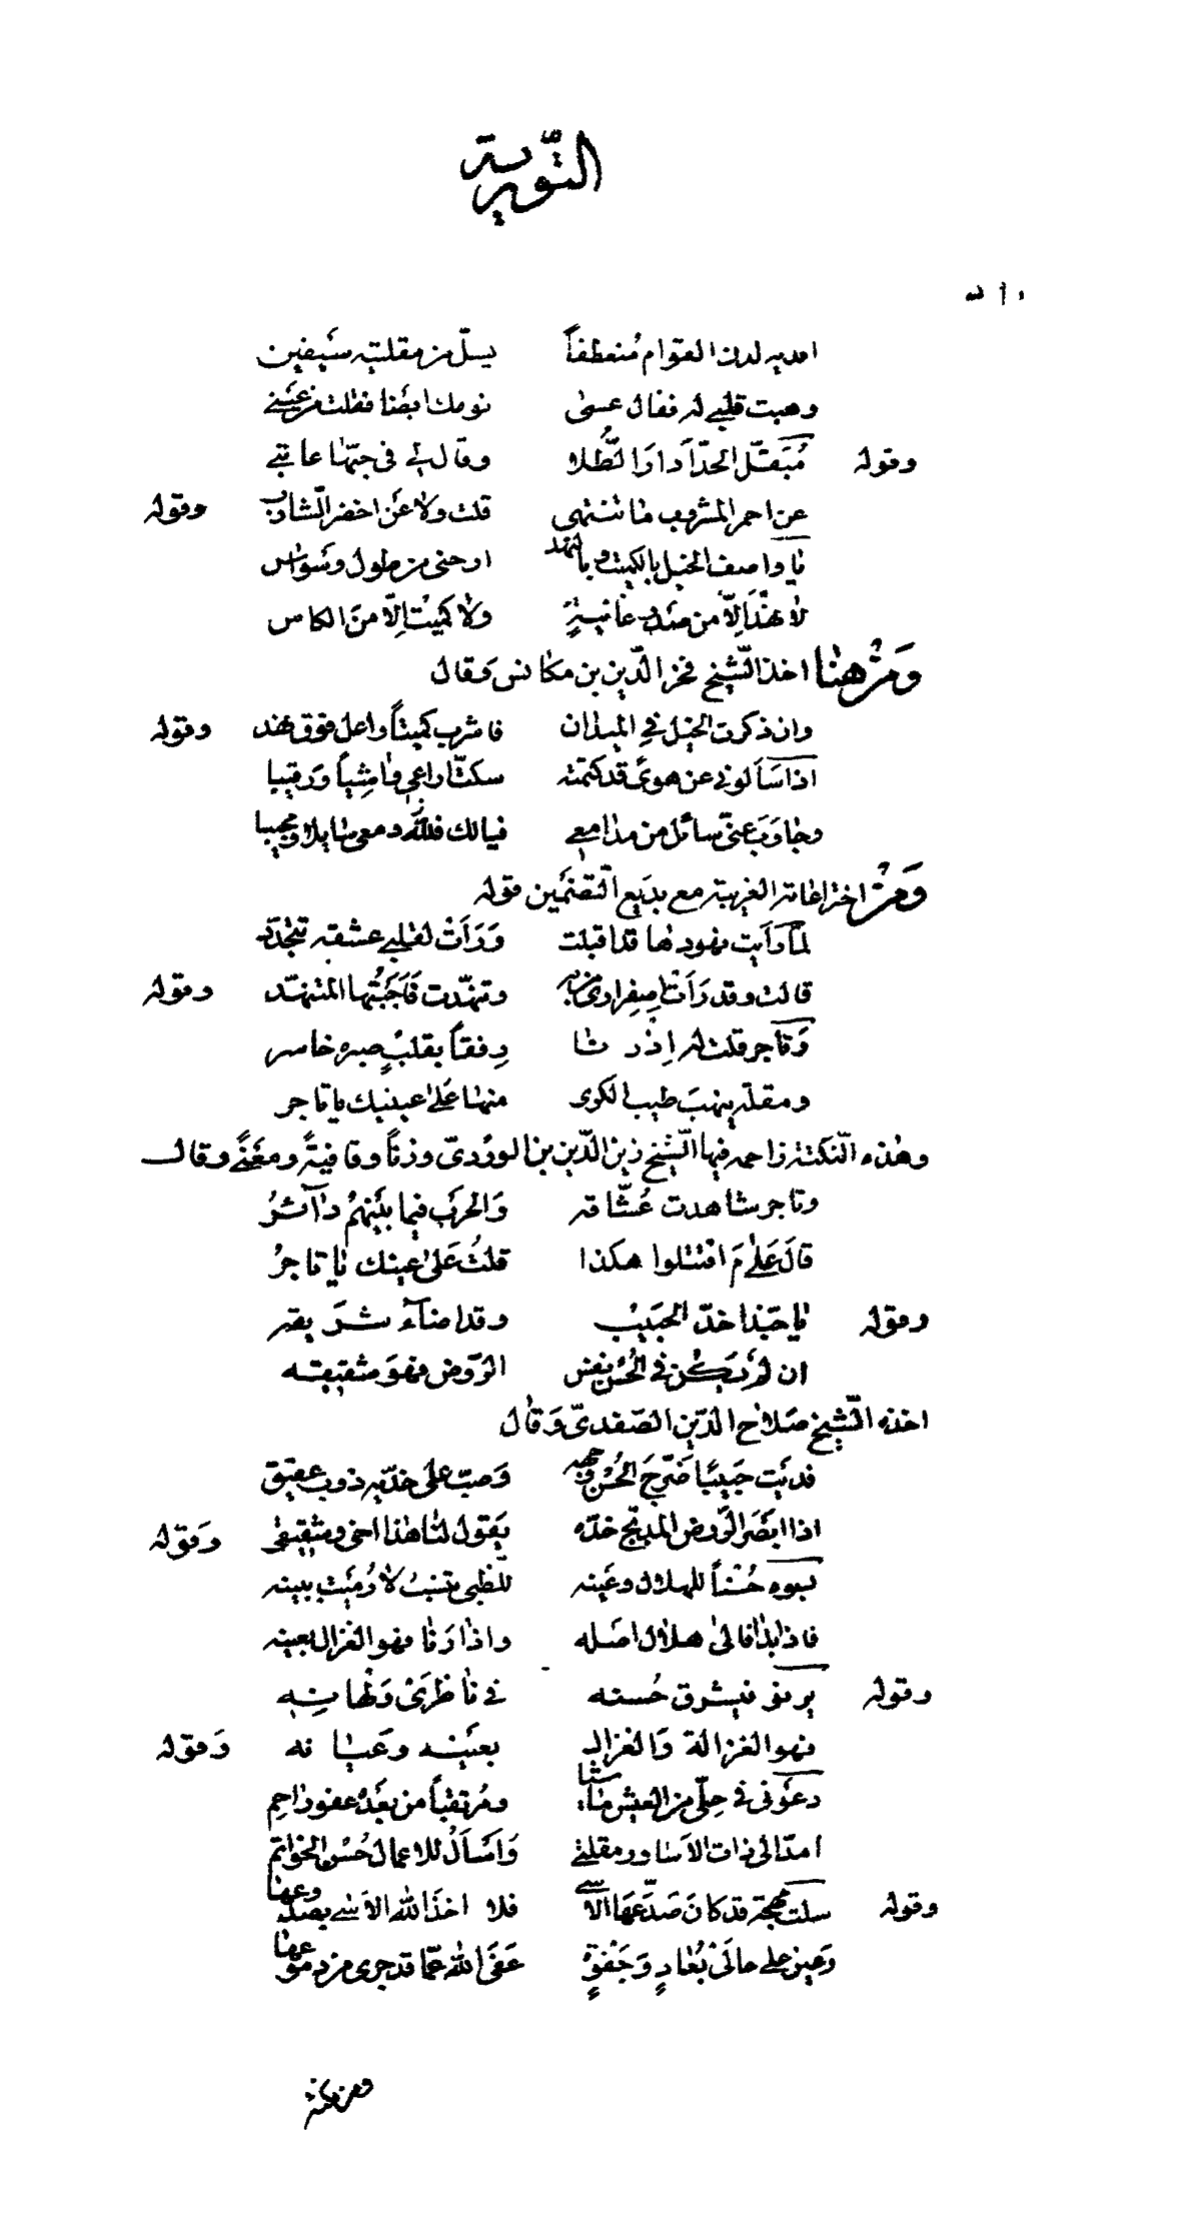 التورية
افديه لدن القوام منعطفاً يسلّ من مقلتيه سيفين
وهبت قلبي له فقال عسى نومك ايضا فقلت من عيني
وقوله مُبَقّل الخدّ أدارَ الطُّلا وقال لي في حبّها عاتبي
عن احمر المشروب ما تنتهى قلت ولا عن اخضر الشارب وقوله
يا واصف الخيل بالكميت وبالنهد ارحنى من طول وسواس
لا نهدَ إلاّ من صدر غانيةٍ ولا كميتَ إلاّ من الكاس
ومن هنا اخذ الشّيخ فخر الدّين بن مكانس وقال
وان ذكرت الخيل في الميدان فاشرب كميتاً واعل فوق نهد وقوله
اذا سَألوني عن هوىً قد كتمته سكتّ اراعي واشياً ورقيبا
وجاوب عنّى سائل من مدامعي فيالك فلله دمعى سايلا ومجيبا
ومن اختراعاته الغريبة مع بديع التضمين قوله
لمّا رأيت نهودها قد اقبلت وَرَأَتْ لقلبي عشقه تتجدّد
قالت وقد رَأت اصفرارى من به وتنهّدت فَأجَبْتُها المتنهّد وقوله
وتاجر قلت له إذ رنا رفقاً بقلبٍ صبره خاسر
ومقلة ينهب طيب الكرى منها عَلىٰ عينيك يا تاجر
وهذه النّكتة زاحمه فيها الشّيخ زين الدّين بن الوردىّ وزناً وقافيةً ومَعْنىً وقال
وتاجر شاهدت عُشّاقه وَالحَرْبُ فيما بَيْنَهُمْ دَآئرُ
قالَ عَلٰىٰ مَ اقتتلوا هكذا قلتُ عَلىٰ عينك يا تاجرُ
وقوله يا حبّذا خدّ الحَبِيْبِ وقد اضآء شَرَ يقه
ان لم يَكُنْ في الحُسْن نفس الرّوض فهوَ شقيقه
اخذه الشّيخ صَلاح الدّين الصّفدىّ وَقال
فديت حَبيبًا ضَرّجَ الحُسْنُ وجهه وَصبّ على خدّيه ذوب عقيق
اذا ابْصَرَ الرّوض المدبّج خدّه يَقول لنا هٰذا اخى وشقيقى وَقوله
بوجهه حُسْناً للهلال وعينه للظّبى تنسبُ لا رُميَت ببينه
فاذا بدا فالىٰ هلالٍ اصله واذا رَنا فهو الغزال بعينه
وقوله يرنو فيشرق حُسنه في ناظرَىْ وَلهانِهِ
فهو الغزالة وَالغزال بعَيْنِه وعَيانه وَقوله
دعَوْنى في حِلّى من العيش مائِساً ومُرتقباً من بعْدُ عفو راحِم
امدّ الى ذات الاساور مقلتي وَاَسْأَلُ للاعمال حُسْنَ الخواتم
وقوله سلت مهجة قد كانَ صَدّعَهَا الاسي فلا اخذَ الله الاسٰى بصدوعها
وَعين على حالَىْ بُعادٍ وَجَفْوَةٍ عَفَى الله عمّا قد جرى من دموعها
ومن نكته